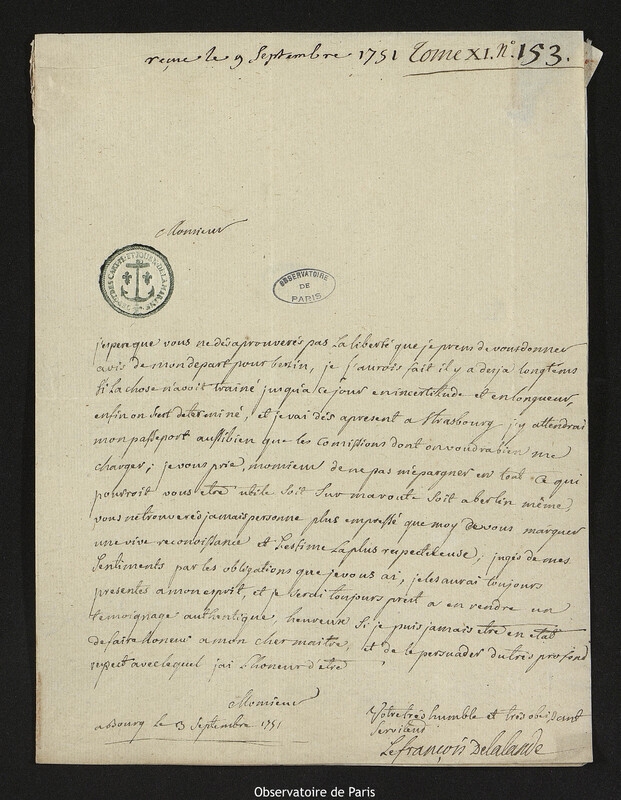 reçue le 9 Septembre 1751 Tome XI. N° 153.
Monsieur
OBSERVATOIRE
DE
PARIS
j'espere que vous ne désaprouverés pas la liberté que je prens de vous donner
avis de mon depart pour berlin, je l'aurois fait il y a deja longtems
Si la chose n'avoit trainé jusqu'a ce jour en incertitude et en longueur
enfin on s'est determiné, et je vai dés apresent a Strasbourg j'y attendrai
mon passeport aussi bien que les comissions dont on voudra bien me
charger; je vous prie, monsieur de ne pas m'epargner en tout ce qui
pourroit vous etre utile soit Sur ma route soit a berlin même,
vous ne trouverés jamais personne plus empressé que moy de vous marquer
une vive reconoissance et l'estime la plus respectueuse; jugés de mes
Sentiments par les obligations que je vous ai, je les aurai toujours
presentes a mon esprit, et je serai toujours prêt a en rendre un
temoignage authentique, heureux Si je puis jamais etre en etat
de faire Honeur a mon cher maitre, et de le persuader du très profond
respect avec lequel j'ai l'honeur d'etre
Monsieur
a Bourg le 3 Septembre 1751
Votre très humble et très obeissant
Serviteur
Lefrançois Delalande
Observatoire de Paris